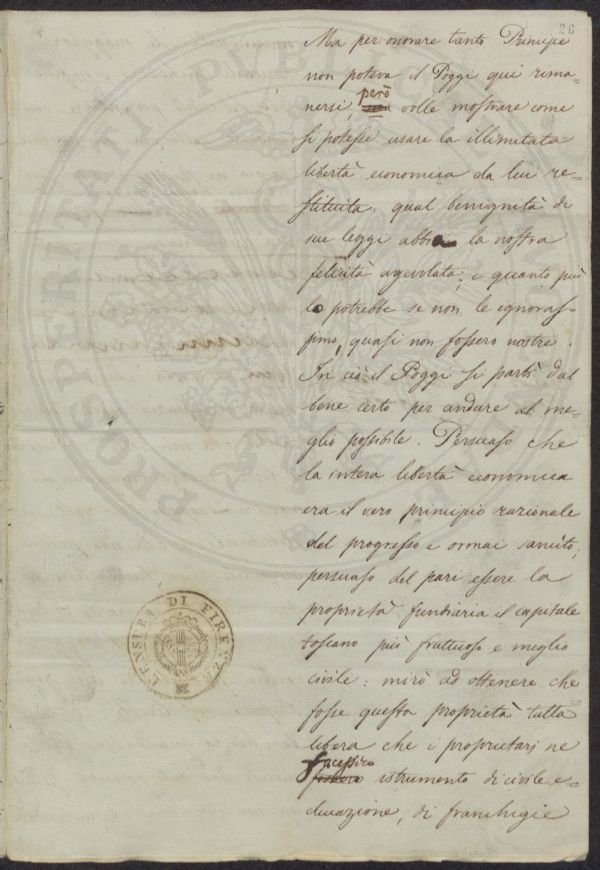 26
Ma per onorare tanto Principe
non poteva il Poggi qui rima-
nersi, però volle mostrare come
si potesse usare la illimitata
libertà economica da lui re-
stituita: qual benignità di
sue leggi abbia la nostra
felicità agevolata; e quanto più
lo potrebbe se non le ignoras-
simo, quasi non fossero nostre.
In ciò il Poggi si partì dal
bene certo per andare al me-
glio possibile. Persuaso che
la intera libertà economica
era il vero principio razionale
del progresso e ormai sancito;
persuaso del pari essere la
proprietà fundiaria il capitale
toscano più fruttuoso e meglio
civile: mirò ad ottenere che
fosse questa proprietà tutta
libera che i proprietarj ne
facessero istrumento di civile e-
ducazione, di franchigie
CENSURA DI FIRENZE
PROSPERITATI PUBLICAE